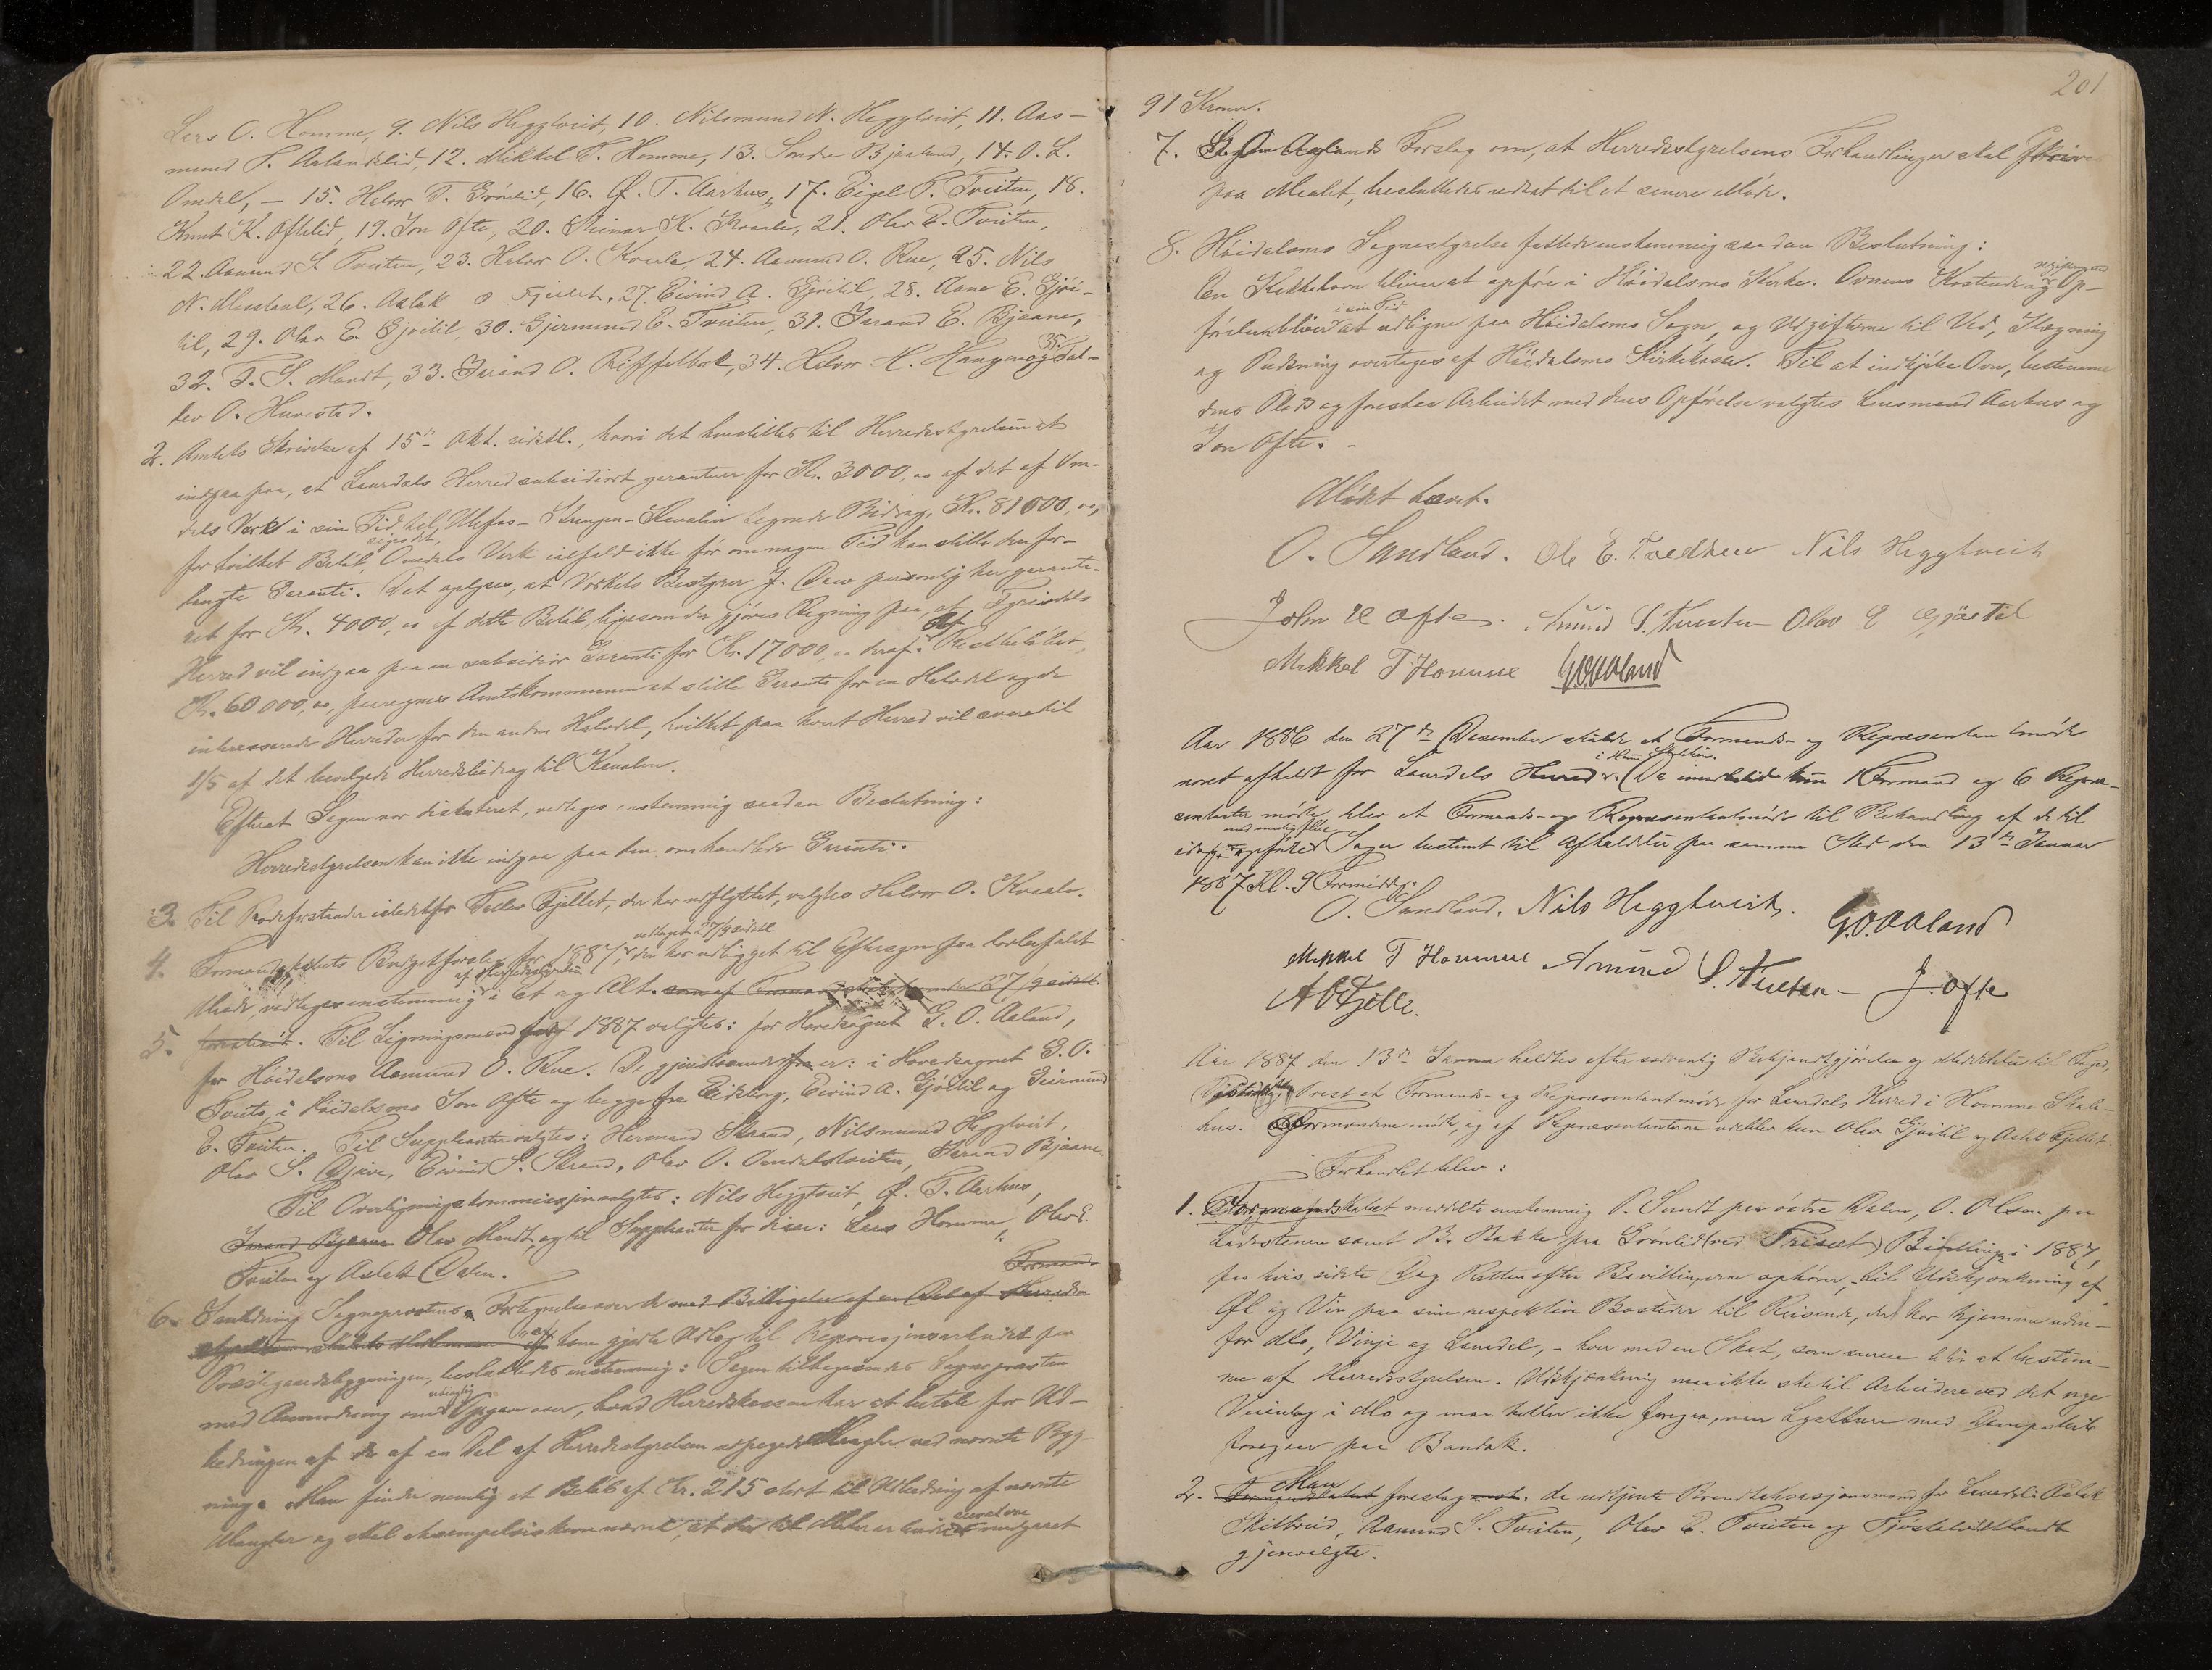 Lers O. Homme, 9. Nils Heggtveit, 10. Nilsmund N. Heggtveit, 11. Aas-
mund S. Aslandslid, 12. Mikkel T. Homme, 13. Sondre Bjaaland, 14. O. L.
Omdal, – 15. Halvor T. Grönlid, 16. Ø. T. Aarhus, 17. Eigel P. Tveiten, 18.
Knut K. Oftelid, 19. Jon Ofte, 20. Steinar K. Kvaale, 21. Olav E. Tveiten,
22. Aamund S. Tveiten, 23. Halvor O. Kvaale, 24. Aamund O. Rue, 25. Nils
N. Musstaul, 26. Aslak O Fjellet, 27. Eivind A. Gjöitil, 28. Aane E. Gjöi-
til, 29. Olav E. Gjöitil, 30. Gjermund E. Tveiten, 31. Jarand E. Bjaane,
32. T. S. Mandt, 33. Jarand O. 34. Halvor H. Haugen og 35. Tal-
lev O. Huvestad.
2. Amtets Skrivelse af 15de Okt. sidstl., hvori det henstilles til Herredsstyrelsen at
indgaa paa, at Laurdals Herred subsidiært garanterer for Kr. 3000,00 af det af Om-
dals Verk i sin Tid til Ulefos–Strengen–Kanalen tegnede Bidrag, Kr. 81000,00,
for hvilket Belöb, siges det, Omdals Verk ialfald ikke för om nogen Tid kan stille den for-
langte Garanti. Det oplyses, at Verkets Bestyrer J. Daw personlig har garante-
ret for Kr. 4000,00 af dette Belöb, ligesom der gjöres Regning paa, at Fyrisdals
Herred vil indgaa paa en subsidiær Garanti for Kr. 17000,00 deraf. Restbelöbet,
Kr. 60000,00, paaregnes Amtskommunen at stille Garanti for en Halvdel og de
interesserede Herreder for den anden Halvdel, hvilket paa hvert Herred vil svare til
1/5 af det bevilgede Herredsbidrag til Kanalen.
Efterat Sagen var diskuteret, vedtoges enstemmig saadan Beslutning:
Herredsstyrelsen kan ikke indgaa paa den omhandlede Garanti.
3. Til Rodeforstander istedetfor Tallev Fjellet, der har udflyttet, valgtes Halvor O. Kvaale.
4. Formandskabets Budgetforslag for 1887, vedtaget 27/9 sidstl, der har udligget til Eftersyn paa lovbefalet
Maade, vedtoges enstemmig af Herredsstyrelsen i Et og Alt. som af Formandskabet under 27/9 sidstl.
5. foreslaaet. Til Ligningsmænd for 1887 valgtes: for Hovedsognet G. O. Aaland,
for Höidalsmo Aamund O. Rue. De gjenstaaende er: i Hovedsognet G. O.
Tveito, i Höidalsmo Jon Ofte og begge fra Eidsborg, Eivind A. Gjöitil og Geirmund
E. Tveiten. Til Suppleanter valgtes: Hermand Strand, Nilsmund Heggtveit,
Olav S. Eivind S. Strand, Olav O. Omdalstveiten, Jarand Bjaane.
Til Overligningskommissjon valgtes: Nils Heggtveit, Ø. T. Aarhus,
Jarand Bjaane Olav Mandt, og til Suppleanter for disse: Lars Homme, Olav E.
Tveiten og Aslak Dalen.
6. I Anledning Sogneprestens Fortegnelse over de med Billigelse af en Del af Herreds-
styrelsen af ham gjorte Udlæg til Reparasjonsarbeidet paa
Prestgaardsbygningen, besluttedes enstemmig: Sagen tilbagesendes Sognepresten
med Anmodning om nöiagtig Opgave over, hvad Herredskassen har at betale for Ud-
bedringen af de af en Del af Herredsstyrelsen udpegede Mangler ved nævnte Byg-
ning. Man finder nemlig et Belöb af Kr. 215 stort til Udbedring af nævnte
Mangler og skal exempelvis kun nævne, at der til Maler er medgaaet
201
91 Kroner.
7. G. O. Aalands Forslag om, at Herredsstyrelsens Forhandlinger skal skrives
paa Maalet, besluttedes udsat til et senere Möde.
8. Höidalsmo Sognestyrelse fattede enstemmig saadan Beslutning:
En Kakkelovn bliver at opföre i Höidalsmo Kirke. Ovnens Kostende og Op-
förelse bliver i sin Tid at udligne paa Höidalsmo Sogn, og Udgifterne til Ved, Hogning
og Pudsning overtages af Höidalsmo Kirkekasse. Til at indkjöbe Ovn, bestemme
dens Plads og forestaa Arbeidet med dens Opförelse valgtes Lensmand Aarhus og
Jon Ofte. –
Mödet hævet.
O. Sundland. Ole E. Tveiten Nils Heggtveit
John K Ofte. Amund S. Tveiten Olav E Gjøitil
Mikkel T Homme G.O. Aaland
Aar 1886 den 27de Desember skulde et Formands- og Repræsentantmöde
været afholdt for Laurdals Herred i Skolehus. Da imidlertid kun 1 Formand og 6 Repræ-
sentanter mödte, blev et Formands- og Repræsentantmöde til Behandling af de til
idag opförte Sager bestemt til Afholdelse paa samme Sted den 13de Januar
1887 Kl. 9 Formiddg.
O. Sundland. Nils Heggtveit. G.O. Aaland
Mikkel T Homme Amund S. Tveiten – J. Ofte
A O Fjelle.
Aar 1887 den 13de Januar holdtes efter sedvanlig Bekjendtgjörelse og Meddelelse til Foged,
Prest et Formands- og Repræsentantmöde for Laurdals Herred i Homme Skole-
hus. Formændene mödte, og af Repræsentanterne udeblev kun Olav Gjöitil og Aslak Fjellet.
Forhandlet blev:
1. Formandskabet meddelte enstemmig O. Sundt paa östre Dalen, O. Olsen paa
Lastestenen samt B. Bakke paa Grönlid (ved Triset) Bevilling i 1887,
paa hvis sidste Dag Retten efter Bevillingerne ophörer, til Udskjænkning af
Øl og Vin paa sine respektive Bosteder til Reisende, der har Hjemme uden-
for Mo, Vinje og Laurdal, – hver med en Skat, som senere blir at bestem-
me af Herredsstyrelsen. Udskjænkning maa ikke ske til Arbeidere ved det nye
Veianlæg i Mo og maa heller ikke foregaa, naar Lystture med Dampskib
foregaar paa Bandak.
2. Formandskabet Man foreslog de udtjente Brandtaksasjonsmænd for Laurdal: Aslak
Skiltveid, Aamund S. Tveiten, Olav E. Tveiten og Tjöstolv Mandt
gjenvalgte.